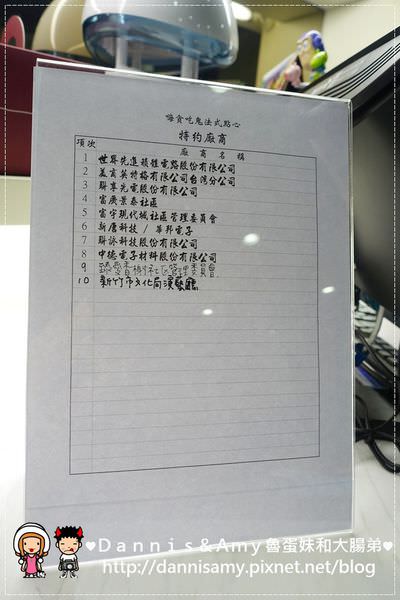 嗨貪吃鬼法式點心
特約廠商
項次 廠商名稱
1 世界先進積體電路股份有限公司
2 美商英特格有限公司台灣分公司
3 聯享光電股份有限公司
4 富廣景泰社區
5 富宇現代城社區管理委員會
6 新唐科技 / 華邦電子
7 聯詠科技股份有限公司
8 中德電子材料股份有限公司
9 社區管理委員會
10 新竹市文化局演藝廳
♥Dannis&Amy魯蛋妹和大腸弟♥
http://dannisamy.pixnet.net/blog